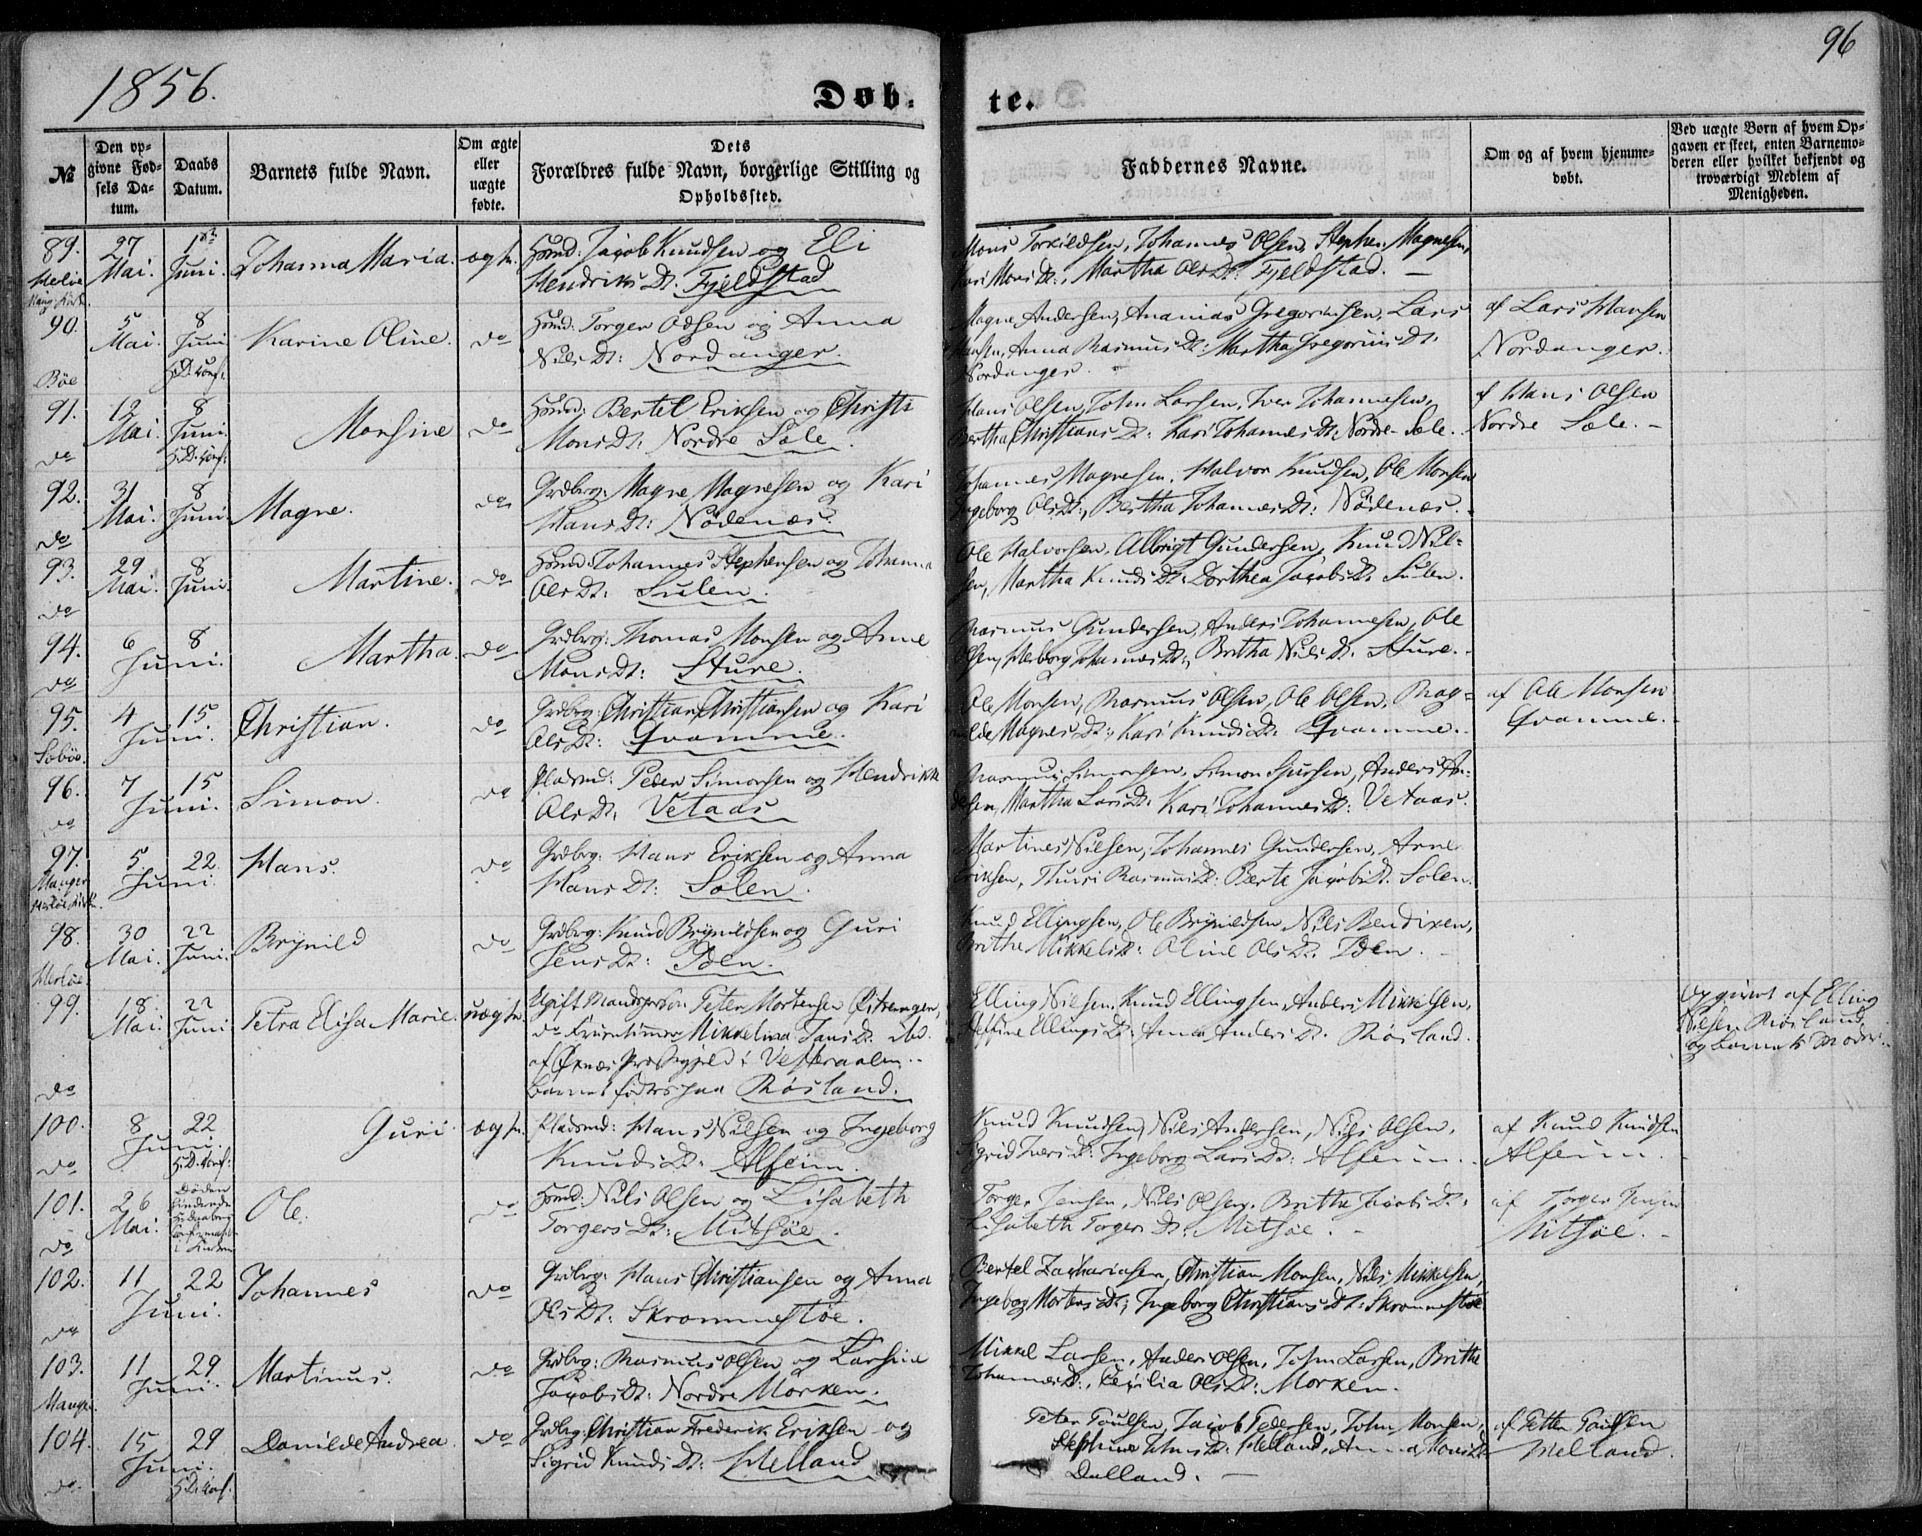 1856.
96
Døb-
te.
№
Den op-
givne Fød-
sels Da-
tum.
Daabs
Datum.
Barnets fulde Navn.
Om ægte
eller
uægte
fødte.
Dets
Forældres fulde Navn, borgerlige Stilling og
Opholdssted.
Faddernes Navne.
Om og af hvem hjemme-
døbt.
Ved uægte Børn af hvem Op-
gaven er skeet, enten Barnemo-
deren eller hvilket bekjendt og
troværdigt Medlem af
Menigheden.
89. 27 Mai. 1 Juni. Johanna Maria. ægte.
Huusmd: Jacob Knudsen og Eli
Hendriks Dt. Fjeldstad
Mons Torkildsen, Johannes Olsen, Stephen Magnesen,
Kari Mons Dt., Martha Ols Dt: Fjeldstad. —
90. 5 Mai. 8 Juni Karine Oline. do
Bøe
H.D. konf:
Huusmd: Torger Olsen og Anna
Nils Dt: Nordanger.
Magne Andersen, Ananias Gregoriusen, Lars
Hansen, Anna Rasmus Dt: Martha Gregorius Dt.
Nordanger.
af Lars Hansen
Nordanger.
91. 12 Mai. 8 Juni. Monsine do
do
H.D. konf:
Huusmd: Bertel Eriksen og Christi
Mons Dt: Nordre Sæle.
Hans Olsen, John Larsen, Iver Johannesen,
Bertha Christians Dt: Kari Johannes Dt: Nordre Sæle.
af Hans Olsen
Nordre Sæle. -
92. 31 Mai. 8 Juni. Magne. do
do
Grdbrg: Magne Magnesen og Kari
Hans Dt: Nødenæs.
Johannes Magnesen, Halvor Knudsen, Ole Monsen
Ingeborg Ols Dt:, Bertha Johannes Dt: Nødenæs.
93. 29 Mai. 8 Juni. Martine. do
do
Huusmd: Johannes Stephensen og Johanna
Ols Dt: Sulen.
Ole Halvorsen, Albrigt Gundersen, Knud Nil-
sen, Martha Knuds Dt: Dorthea Jacobs Dt. Sulen.
94. 6 Juni. 8 Martha. do
do
Grdbrg: Thomas Monsen og Anne
Mons Dt: Sture.
Rasmus Gundersen, Anders Johannesen, Ole
Olsen, Herborg Johannes Dt:, Britha Nils Dt. Sture.
95. 4 Juni. 15. Christian. do
Sæbøe.
Grdbrg: Christian Christiansen og Kari
Ols Dt: Qvamme.
Ole Monsen, Rasmus Olsen, Ole Olsen, Rag-
nilde Magnes Dt:, Kari Knuds Dt. Qvamme.
af Ole Monsen
Qvamme.
96. 7 Juni. 15 Simon. do
do
Pladsmd: Peder Simonsen og Hendrikke
Ols Dt: Vetaas
Rasmus Simonsen, Simon Sjursen, Anders An-
dersen, Martha Lars Dt: Kari Johannes Dt: Vetaas.
97. 5. Juni. 22. Hans. do
Manger
Grdbrg: Hans Eriksen og Anna
Hans Dt: Solen.
Martines Nilsen, Johannes Gundersen, Arne
Eriksen, Thuri Rasmus Dt: Berte Jacobs Dt. Solen.
98. 30 Mai. 22 Juni. Brynild do
Herløe.
Grdbrg: Knud Brynildsen og Guri
Jens Dt: Iden.
Knud Ellingsen, Ole Brynildsen, Nils Bendixen,
Brithe Mikkels Dt: Oline Ols Dt. Iden. -
99. 18. Mai. 22 Juni Petra Elisa Marie. uægte.
do
Ugift Mandsperson Peter Mortensen Østremgen,
do Fruentimmer Mikkelina Jans Dt.
af Øxnæs Præstegjeld i Vesteraalen.
Barnet fødes paa Røsland.
Elling Nilsen, Knud Ellingsen, Anders Mikkelsen,
Ellings Dt: Anna Anders Dt. Røsland.
Opgivet af Elling
Nilsen Røsland,
og Barnets Moder.
100. 8 Juni. 22 Guri. ægte.
do
H.D. konf:
Pladsmd: Hans Nilsen og Ingeborg
Knuds Dt: Alfeim.
Knud Knudsen, Nils Andersen, Nils Olsen,
Sigrid Ivers Dt: Ingeborg Lars Dt: Alfeim.
af Knud Knudsen
Alfeim.
101. 26 Mai. Ole. do
do
Døden
hindrede
Hjemdaabens
Confirmation
i Kirken
Huusmd: Nils Olsen og Lisabeth
Torgers Dt: Mitsøe.
Torger Jensen, Nils Olsen, Britha Jacobs Dt:
Lisabeth Torgers Dt: Mitsøe. -
af Torger Jensen
Mitsøe. -
102. 11 Juni. 22 Johannes do
do
Grdbrg: Hans Christiansen og Anna
Ols Dt: Skrommestøe.
Bertel Zachariasen, Christian Monsen, Nils Mikkelsen,
Ingeborg Mortens Dt:, Ingeborg Christians Dt: Skrommestøe
103. 11 Juni. 29 Martinus. do
Manger.
Grdbrg: Rasmus Olsen og Larsine
Jacobs Dt: Nordre Morken.
Mikkel Larsen, Anders Olsen, John Larsen, Brithe
Johannes Dt., Cecilia Ols Dt: Morken.
104. 15 Juni. 29 Danilde Andrea. do
do.
H.D. konf.
Grdbrg: Christian Frederik Eriksen og
Sigrid Knuds Dt: Helland
Peter Poulsen, Jacob Pedersen, John Monsen,
Stephine Johns Dt: Helland, Anna Mons Dt:
Dalland. —
af Petter Poulsen
Helland.